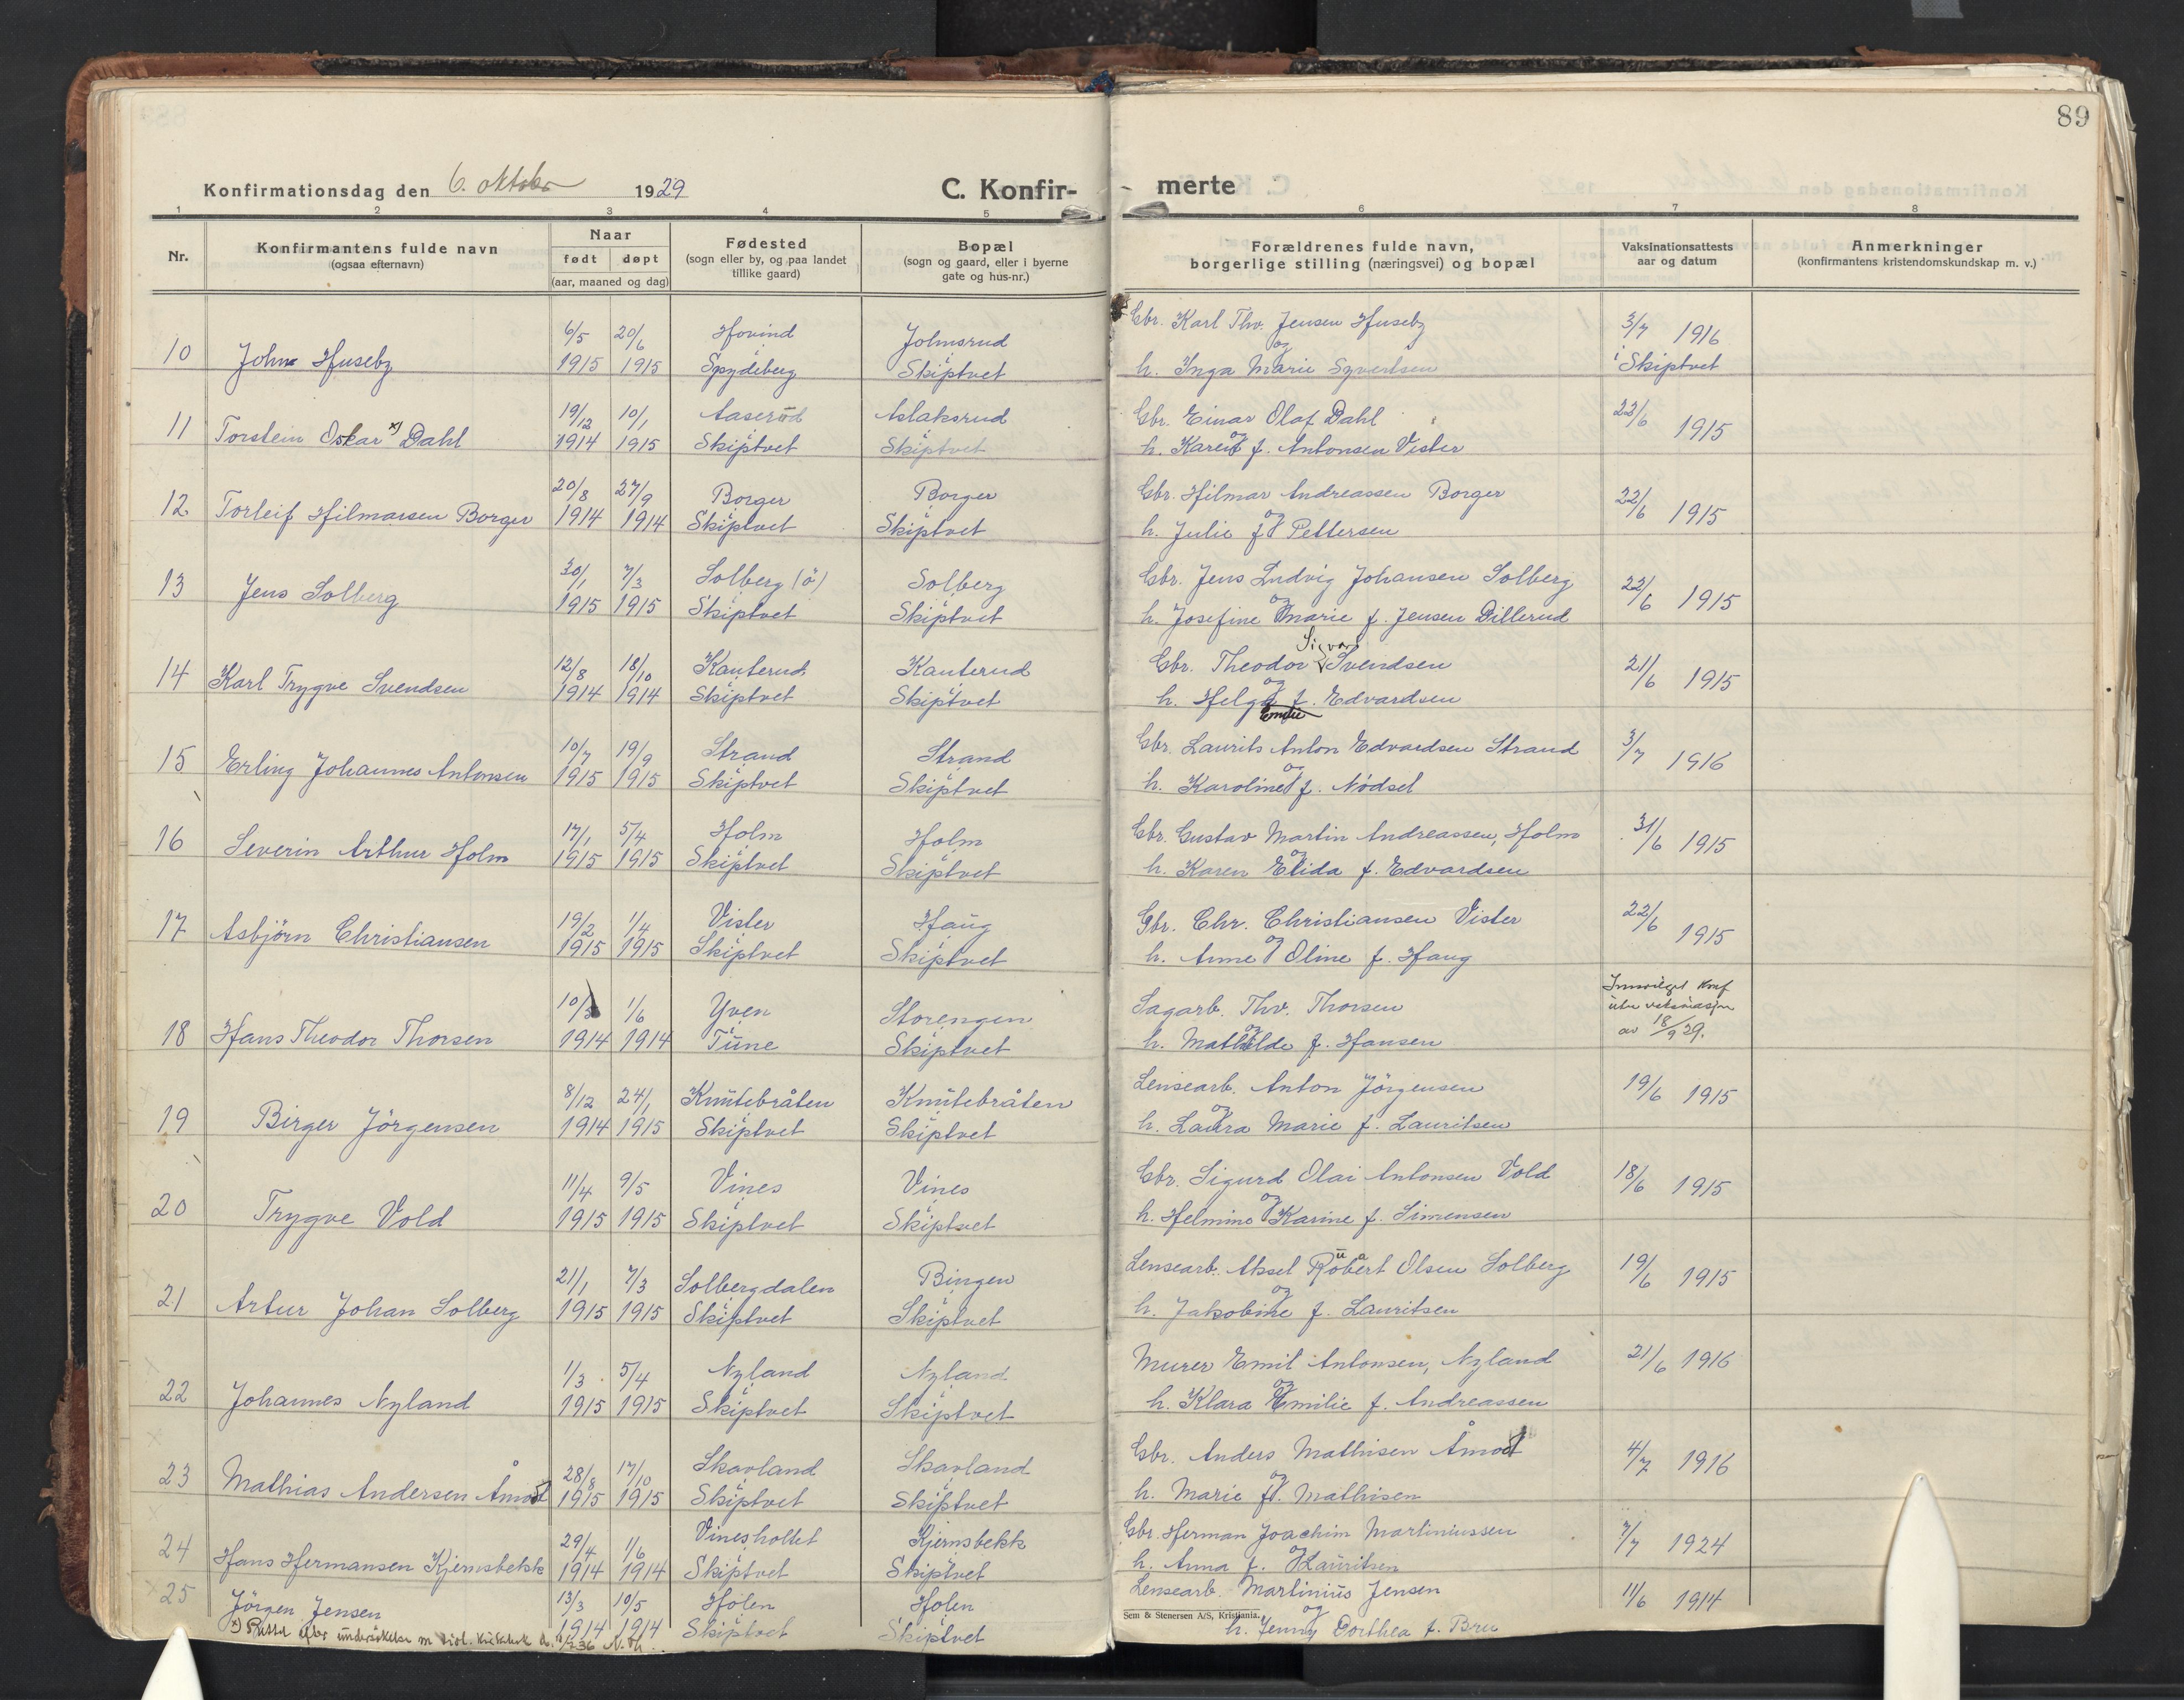 89
Konfirmationsdag den 6. oktober 1929
C. Konfir-
merte
1 2 3 4 5 6 7 8
Nr.
Konfirmantens fulde navn
(ogsaa efternavn)
Naar
født døpt
(aar, maaned og dag)
Fødested
(sogn eller by, og paa landet
tillike gaard)
Bopæl
(sogn og gaard, eller i byerne
gate og hus-nr.)
Forældrenes fulde navn,
borgerlige stilling (næringsvei) og bopæl
Vaksinationsattests
aar og datum
Anmerkninger
(konfirmantens kristendomskundskap m. v.)
6/5 20/6 Hovind Jolmsrud Gbr. Karl Thv. Jensen Huseby 3/7 1916
10 John Huseby 1915 1915 Spydeberg Skiptvet og h. Inga Marie Syvertsen i Skiptvet
19/12 10/1 Aaseröd Aslaksrud Gbr. Einar Olaf Dahl 22/6
11 Torstein Oskar x) Dahl 1914 1915 Skiptvet Skiptvet og h. Karen f. Antonsen Vister 1915
20/8 27/9 Borger Borger Gbr. Hilmar Andreassen Borger 22/6
12 Torleif Hilmarsen Borger 1914 1914 Skiptvet Skiptvet og h. Julie f. Pettersen 1915
30/1 7/3 Solberg (ö) Solberg Gbr. Jens Ludvig Johansen Solberg 22/6
13 Jens Solberg 1915 1915 Skiptvet Skiptvet og h. Josefine Marie f. Jensen Dillerud 1915
12/8 18/10 Kauterud Kauterud Gbr. Theodor Sigvart Svendsen 21/6
14 Karl Trygve Svendsen 1914 1914 Skiptvet Skiptvet og h. Helga Emilie f. Edvardsen 1915
10/7 19/9 Strand Strand Gbr. Laurits Anton Edvardsen Strand 3/7
15 Erling Johannes Antonsen 1915 1915 Skiptvet Skiptvet og h. Karoline f. Nödset 1916
17/1 5/4 Holm Holm Gbr. Gustav Martin Andreassen, Holm 31/6
16 Severin Arthur Holm 1915 1915 Skiptvet Skiptvet og h. Karen Elida f. Edvardsen 1915
19/2 1/4 Vister Haug Gbr. Chr. Christiansen Vister 22/6
17 Asbjörn Christiansen 1915 1915 Skiptvet Skiptvet og h. Anne Oline f. Haug 1915
10/3 1/6 Yven Storengen Sagarb. Thv. Thorsen Innvilget Konf
uten vaksinasjon
18 Hans Theodor Thorsen 1914 1914 Tune Skiptvet og h. Mathilde f. Hansen av 18/9 29.
8/12 24/1 Knutebråten Knutebråten Lensearb. Anton Jörgensen 19/6
19 Birger Jörgensen 1914 1915 Skiptvet Skiptvet og h. Laura Marie f. Lauritsen 1915
11/4 9/5 Vines Vines Gbr. Sigurd Olai Antonsen Vold 18/6
20 Trygve Vold 1915 1915 Skiptvet Skiptvet og h. Helmine Karine f. Simensen 1915
21/1 7/3 Solbergdalen Bingen Lensearb. Aksel Robert Olsen Solberg 19/6
21 Artur Johan Solberg 1915 1915 Skiptvet Skiptvet og h. Jakobine f. Lauritsen 1915
1/3 5/4 Nyland Nyland Murer Emil Antonsen, Nyland 21/6 1916
22 Johannes Nyland 1915 1915 Skiptvet Skiptvet og h. Klara Emilie f. Andreassen
28/8 17/10 Skavland Skavland Gbr. Anders Mathisen Åmodt 4/7 1916
23 Mathias Andersen Åmodt 1915 1915 Skiptvet Skiptvet og h. Marie f. Mathisen
29/4 1/6 Vinesholtet Kjernsbekk Gbr. Herman Joachim Martiniussen 7/7 1924
24 Hans Hermansen Kjernsbekk 1914 1914 Skiptvet Skiptvet og h. Anna f. Lauritsen
25 Jörgen Jensen 13/3 10/5 Holen Holen Lensearb. Martinius Jensen 11/6 1914
1914 1914 Skiptvet Skiptvet og h. Jenny Dorthea f. Bru
x) Rettet efter undersökelse m
Sem & Stenersen A/S, Kristiania.